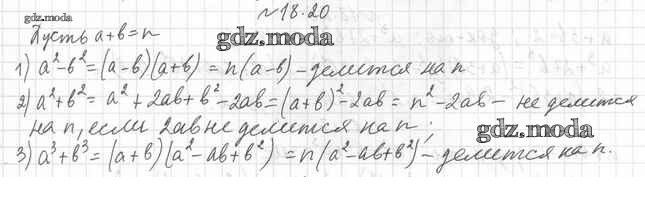 №18.20
gdz.moda
Пусть a+b=n
gdz.moda
1) a²-b²=(a-b)(a+b) = n(a-b) – делится на n
2) a²+b²= a²+2ab+b²-2ab=(a+b)²-2ab= n²-2ab – не делится
на n, если 2ab не делится на n;
gdz.moda
3) a³+b³=(a+b)(a²-ab+b²) = n(a²-ab+b²) – делится на n.